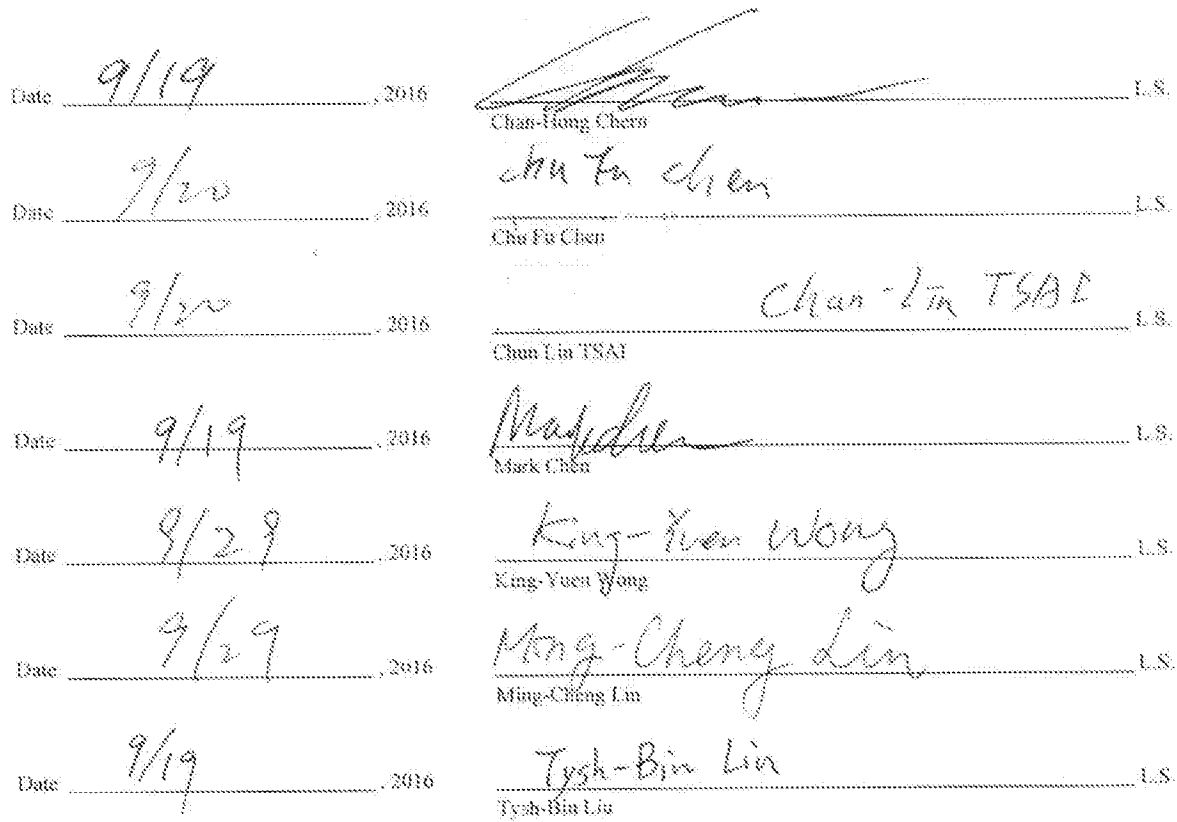 Date 9/19 , 2016 L.S.
Chan-Hong Chern
Date 9/20 , 2016 Chu Fu chen L.S.
Chu Fu Chen
Date 9/20 , 2016 Chun-Lin TSAI L.S.
Chun Lin TSAI
Date 9/19 , 2016 Mark Chen L.S.
Mark Chen
Date 9/29 , 2016 King-Yuen Wong L.S.
King-Yuen Wong
Date 9/29 , 2016 Ming-Cheng Lin L.S.
Ming-Cheng Lin
Date 9/19 , 2016 Tysh-Bin Liu L.S.
Tysh-Bin Liu